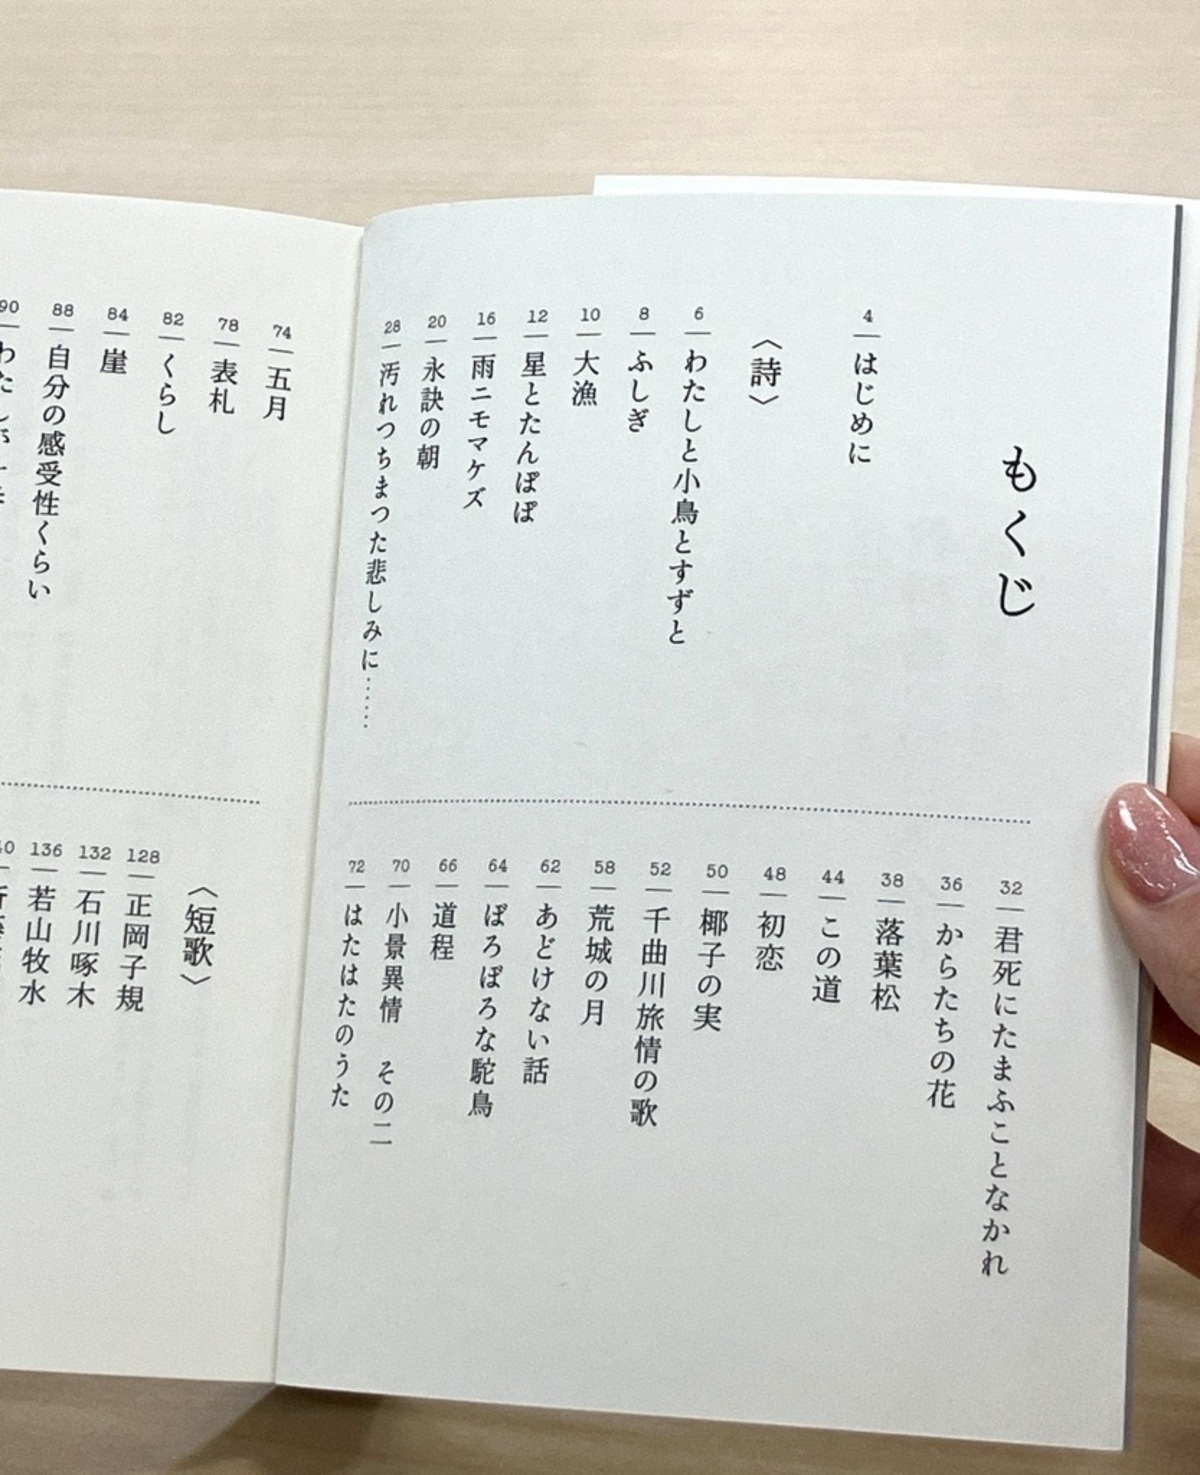 もくじ
4 はじめに
〈詩〉
6 わたしと小鳥とすずと
8 ふしぎ
10 大漁
12 星とたんぽぽ
16 雨ニモマケズ
20 永訣の朝
28 汚れつちまつた悲しみに……
32 君死にたまふことなかれ
36 からたちの花
38 落葉松
44 この道
48 初恋
50 椰子の実
52 千曲川旅情の歌
58 荒城の月
62 あどけない話
64 ぼろぼろな駝鳥
66 道程
70 小景異情 その二
72 はたはたのうた
74 五月
78 表札
82 くらし
84 崖
88 自分の感受性くらい
90
〈短歌〉
128 正岡子規
132 石川啄木
136 若山牧水